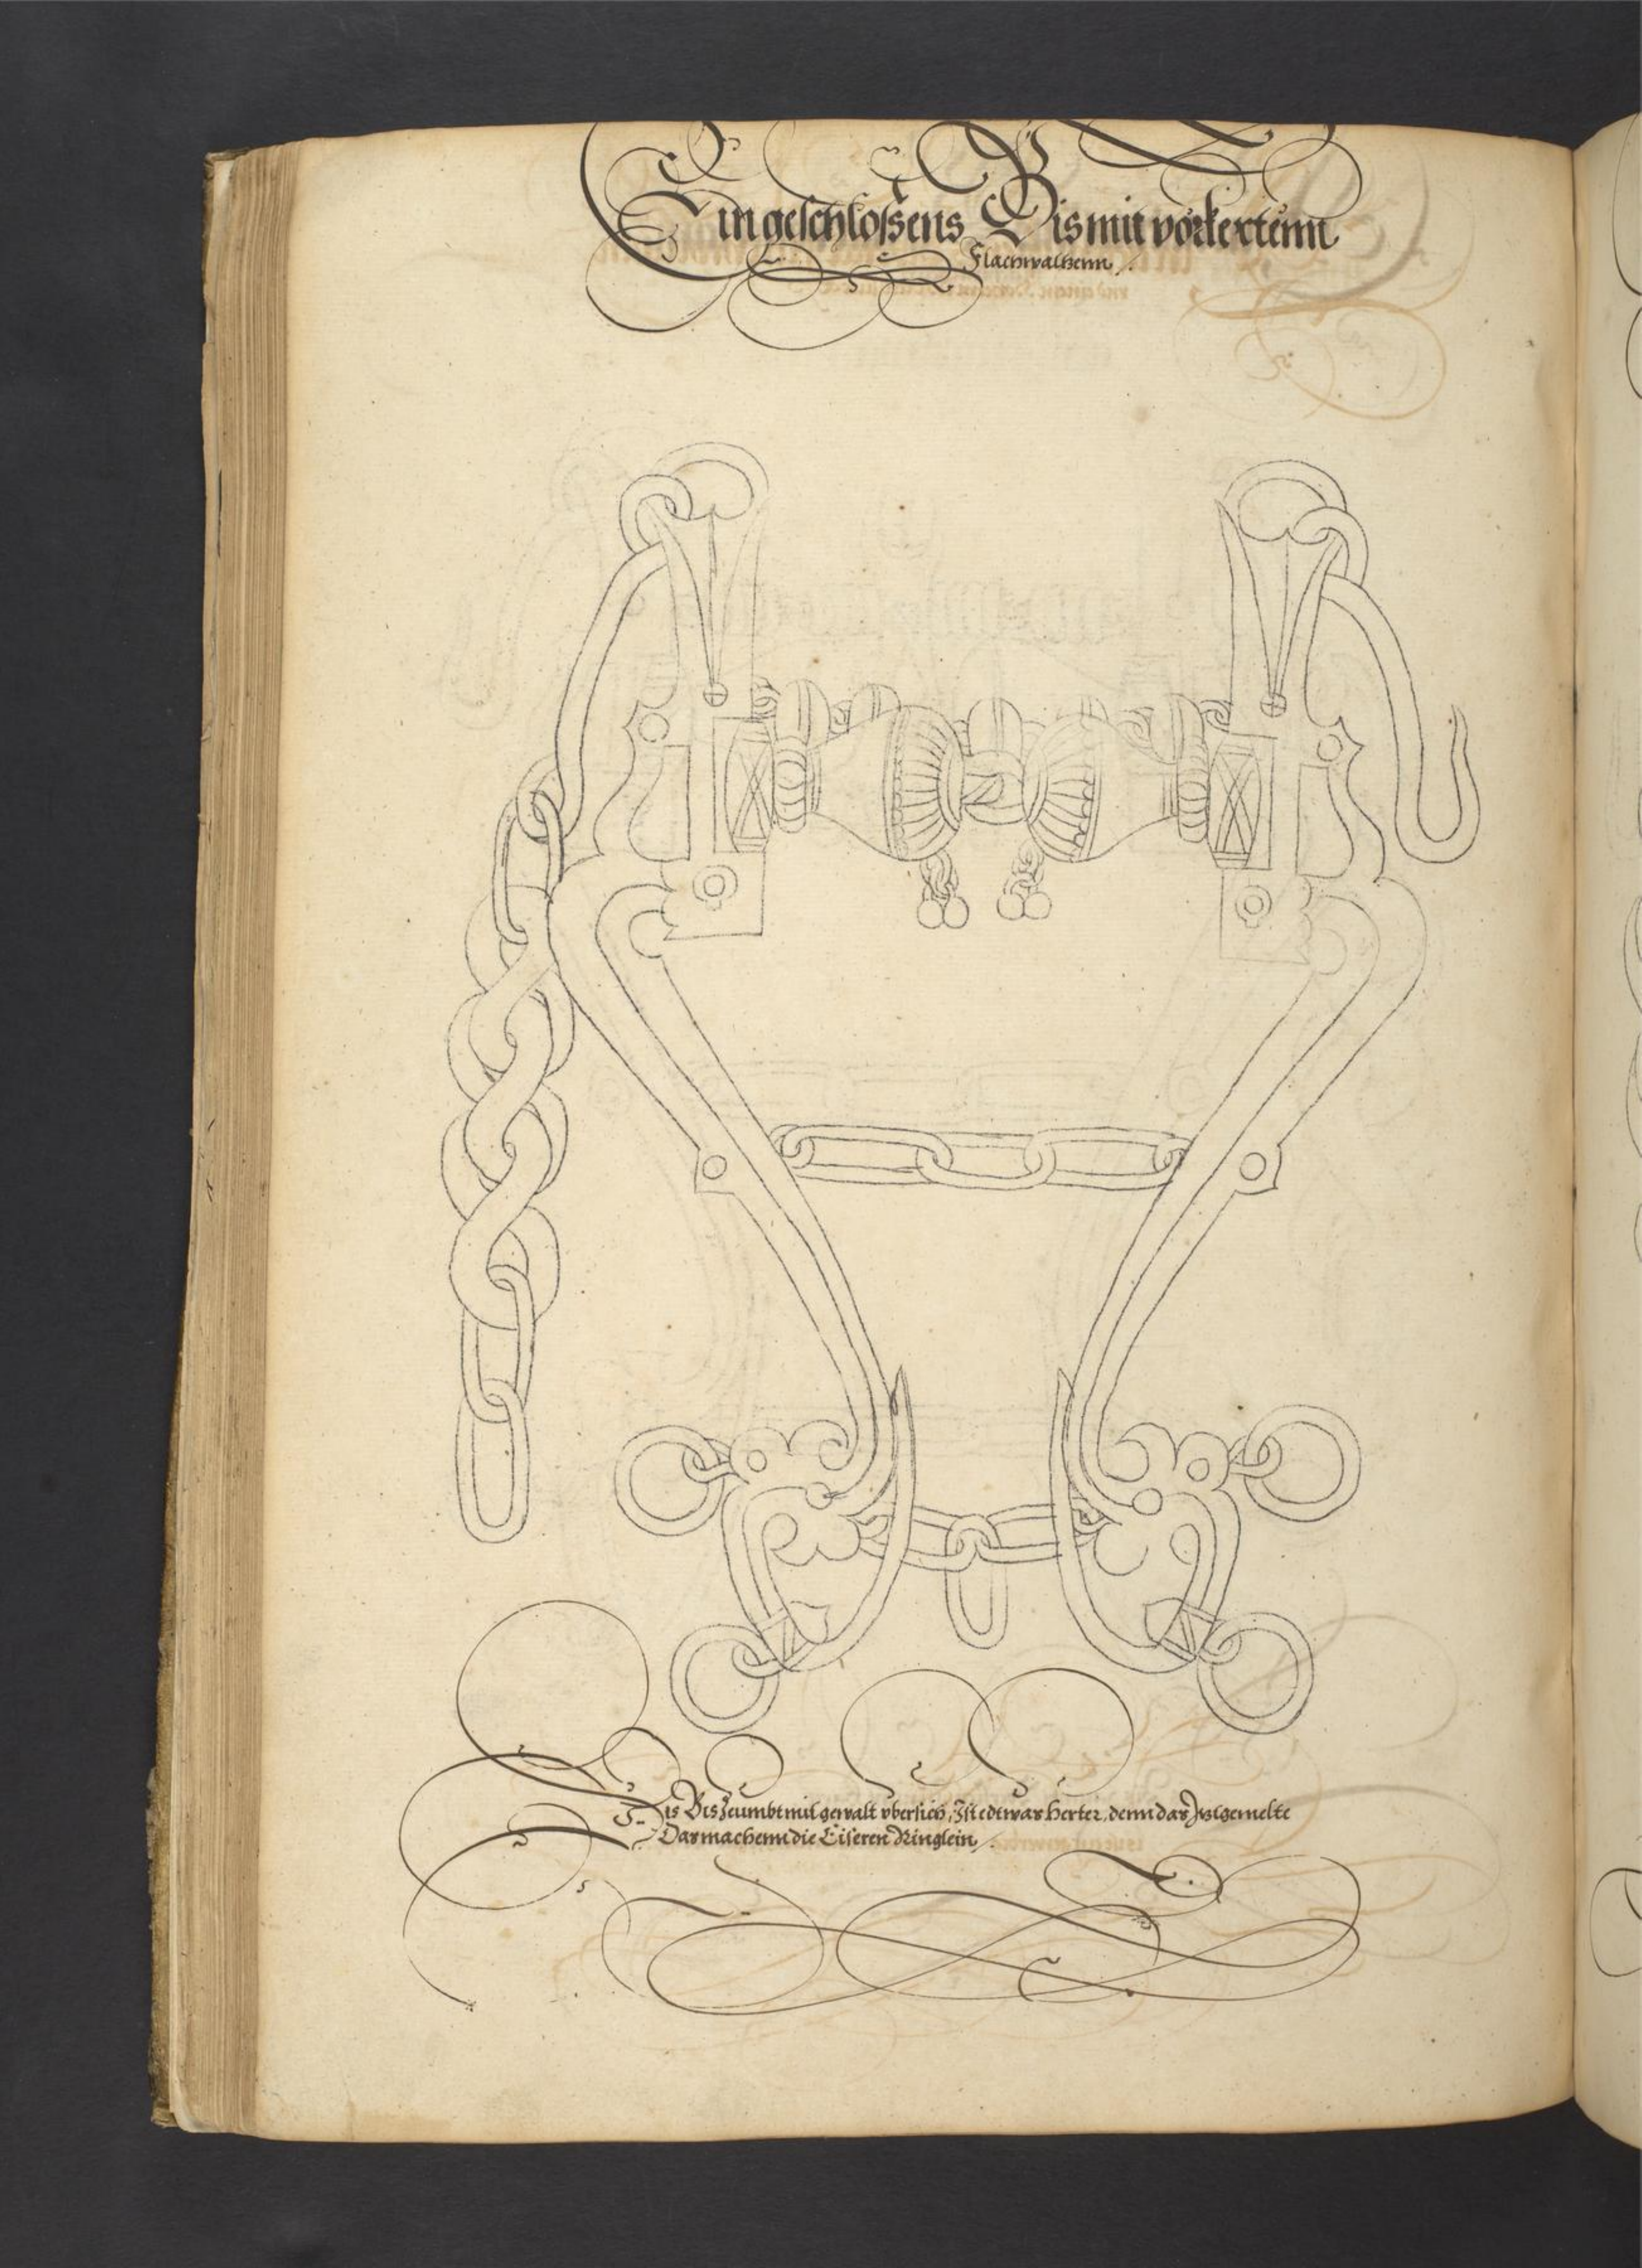 Ein geschlossens Bis mit vorkertenn
Flachwaltzenn
Dis Bis Zeumbt mit gewalt vbersich, Ist edtwas herter, denn das Itzgemelte
Das machenn die Eiseren Ringlein